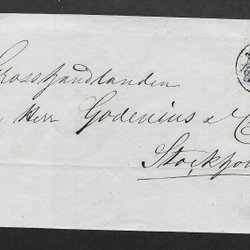 Grosshandlanden
Herr Godenius & C
Stockho